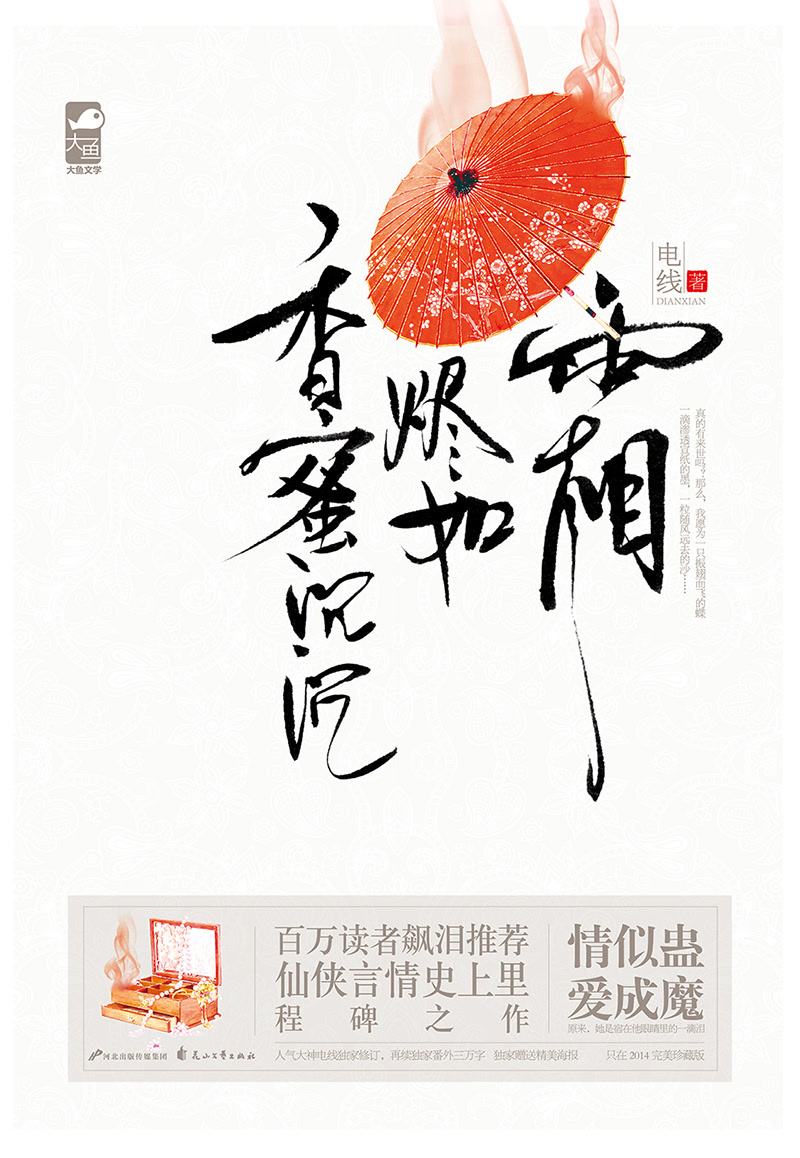 大鱼
大鱼文学
香蜜沉沉
烬如
霜
电线
著
DIANXIAN
真的有来世吗？那么，我愿为一只振翅而飞的蝶
一滴渗透宣纸的墨，一粒随风远去的沙……
百万读者飙泪推荐
仙侠言情史上里
程碑之作
情似蛊
爱成魔
原来，她是宿在他眼睛里的一滴泪
河北出版传媒集团
花山文艺出版社
人气大神电线独家修订，再续独家番外三万字 独家赠送精美海报 只在2014完美珍藏版